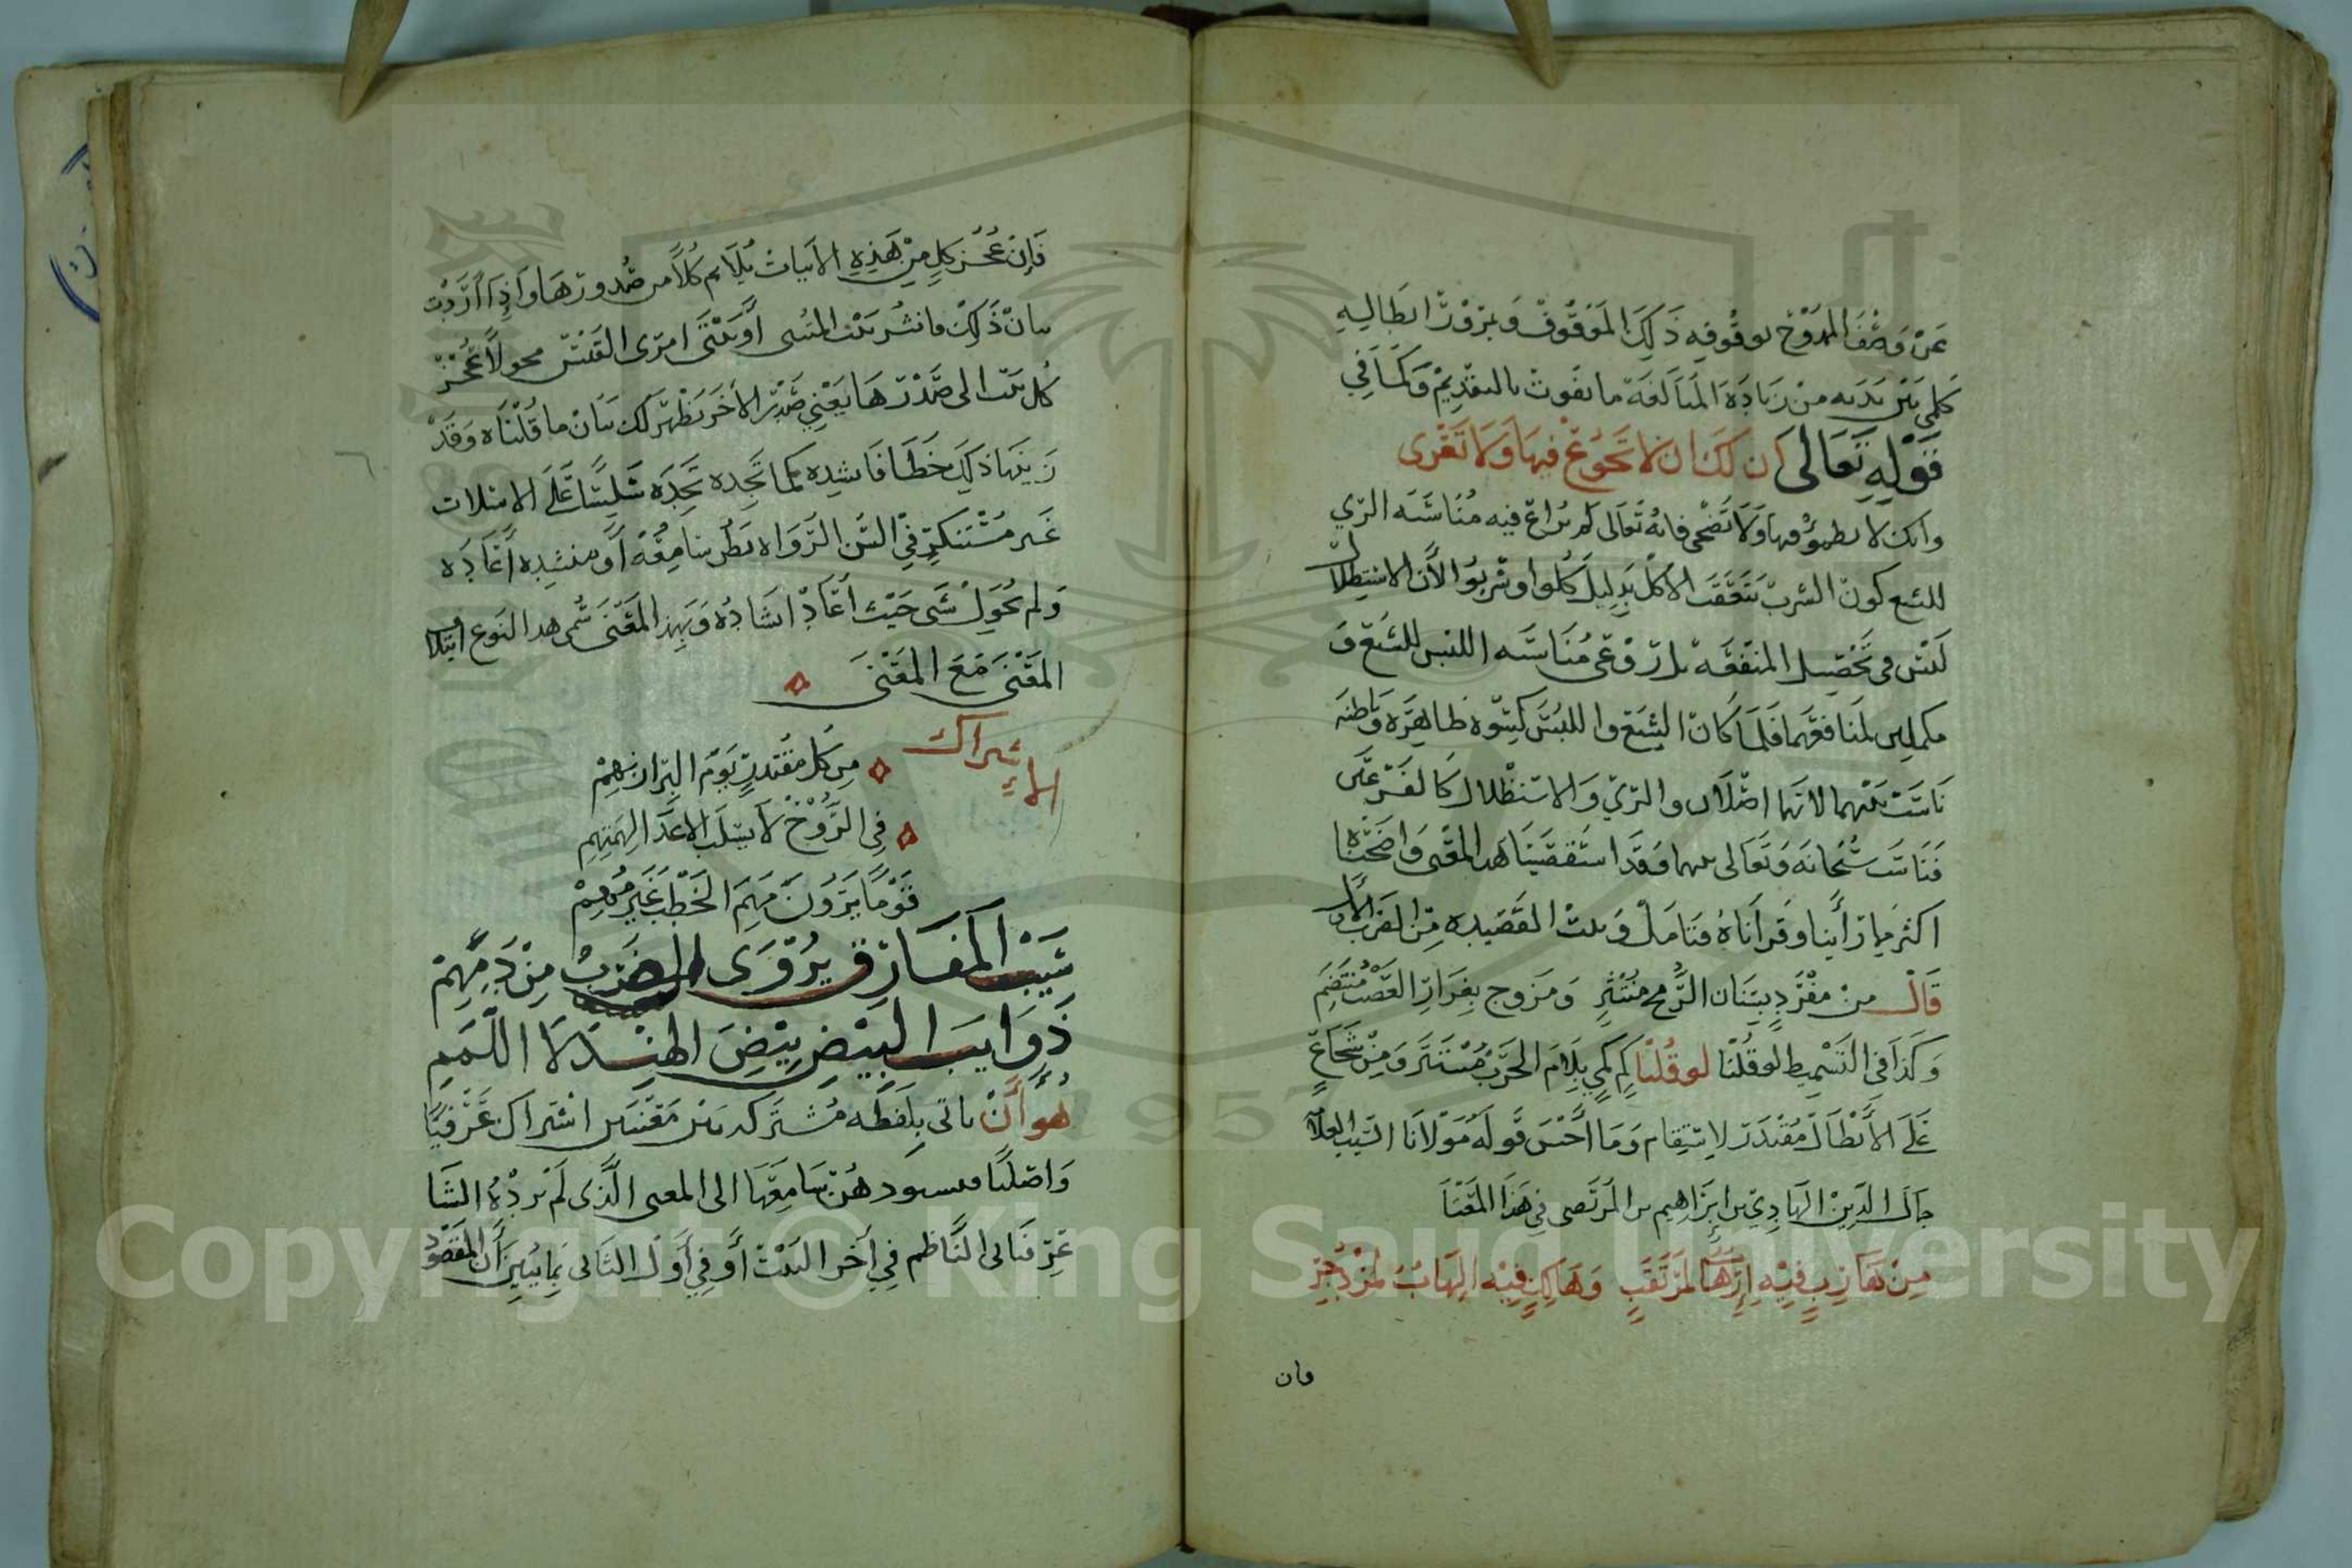 عن وصف الممدوح بوقوفه ذلك الموقوف ومرور ابطاليه
كلمى بين يديه من زيادة المبالغة ما يفوت بالتقديم وكما في
قوله تعالى ان لك ان لا تجوع فيها ولا تعرى
وانك لا تظمؤ فيها ولا تضحى فانه تعالى لم يراع فيه مناسبة الري
للشبع كون الشرب يتعقب الاكل بدليل كلوا واشربوا لأن الاستظلال
لبس في تحصيل المنفعة بل روعي مناسبة اللبس للشبع و
مكملين لمنافعهما فلما كان الشبع واللبس كسوة ظاهرة وباطنه
ناسب بينهما لانهما اصلان والري والاستظلال كالفرعين
فناسب سبحانه وتعالى بينهما وقد استقصينا هذا المعنى واضحناه
اكثر مما رأينا وقرأناه فتامل وبيت القصيده من الضرب الاول
قال من مفرد بسنان الرمح منتثر ومزوج بغرار العضب منتضم
وكذا في التسميط لو قلنا لو قلنا كم كمي بلام الحرب مستتر ومن شجاع
على الأبطال مقتدر لا ستقام وما أحسن قوله مولانا السيد العلامة
جمال الدين الهادي بن ابراهيم بن المرتضى في هذا المعنا
من هازب فيه ارها لمرتقب وهالك فيه الهاب لمزدجر
وان
فإن عجز كل من هذه الابيات يلايم كلا من صدورها واذا أردت
بيان ذلك فانشر بيت المتنبى أو بيتى امرى القيس محولا عجز
كل بيت الى صدرها يعني صدر الاخر يظهر لك بيان ما قلناه وقد
غير مستنكر في السن الرواه يطر سامعه أو منشده اعاده
ولم يحول شى حيث أعاد انشاده وبهذا المعنى سمى هذا النوع ايتلاف
المعنى مع المعنى
الاشراك
من كل مقتدر يوم البزان بهم
في الروح لا يسلب الاعدا الهمتهم
قوما يرون مهم الخطب غير مهم
شيب المفارق يروى الضرب من دمهم
ذوايب البيض بيض الهند لا اللمم
هو أن ياتى بلفظه مشتركه بين معنيين اشتراك عرفيا
واصليا فيسبود هن سامعها الى المعنى الذي لم يرده الشا
عر فياتى الناظم في آخر البيت أو في أول الثانى بما يبين أن المقصود